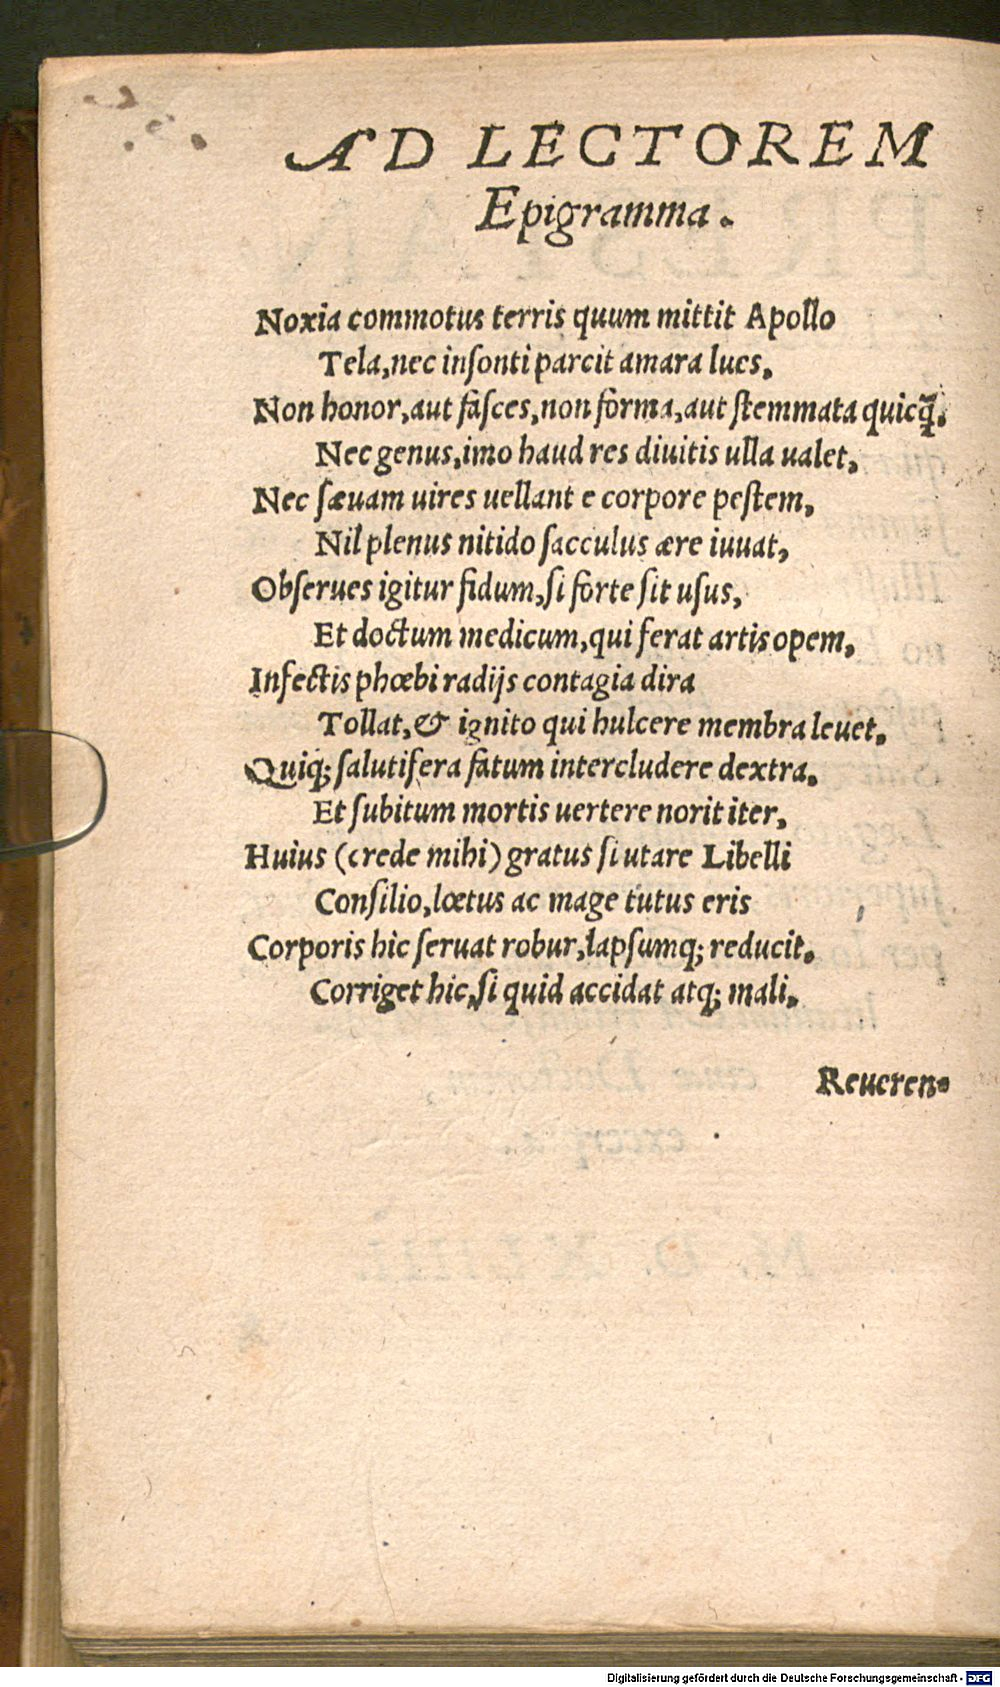 AD LECTOREM
Epigramma.
Noxia commotus terris quum mittit Apollo
Tela, nec inſonti parcit amara lues,
Non honor, aut faſces, non forma, aut ſtemmata quicq̃.
Nec genus, imo haud res diuitis ulla ualet,
Nec ſæuam uires uellant e corpore peſtem,
Nil plenus nitido ſacculus ære iuuat,
Obſerues igitur fidum, ſi forte ſit uſus,
Et doctum medicum, qui ferat artis opem,
Infectis phœbi radijs contagia dira
Tollat, & ignito qui hulcere membra leuet.
Quiq; ſalutifera fatum intercludere dextra.
Et ſubitum mortis uertere norit iter,
Huius (crede mihi) gratus ſi utare Libelli
Conſilio, lœtus ac mage tutus eris
Corporis hic ſeruat robur, lapſumq; reducit.
Corriget hic, ſi quid accidat atq; mali.
Reueren-
Digitalisierung gefördert durch die Deutsche Forschungsgemeinschaft - DFG